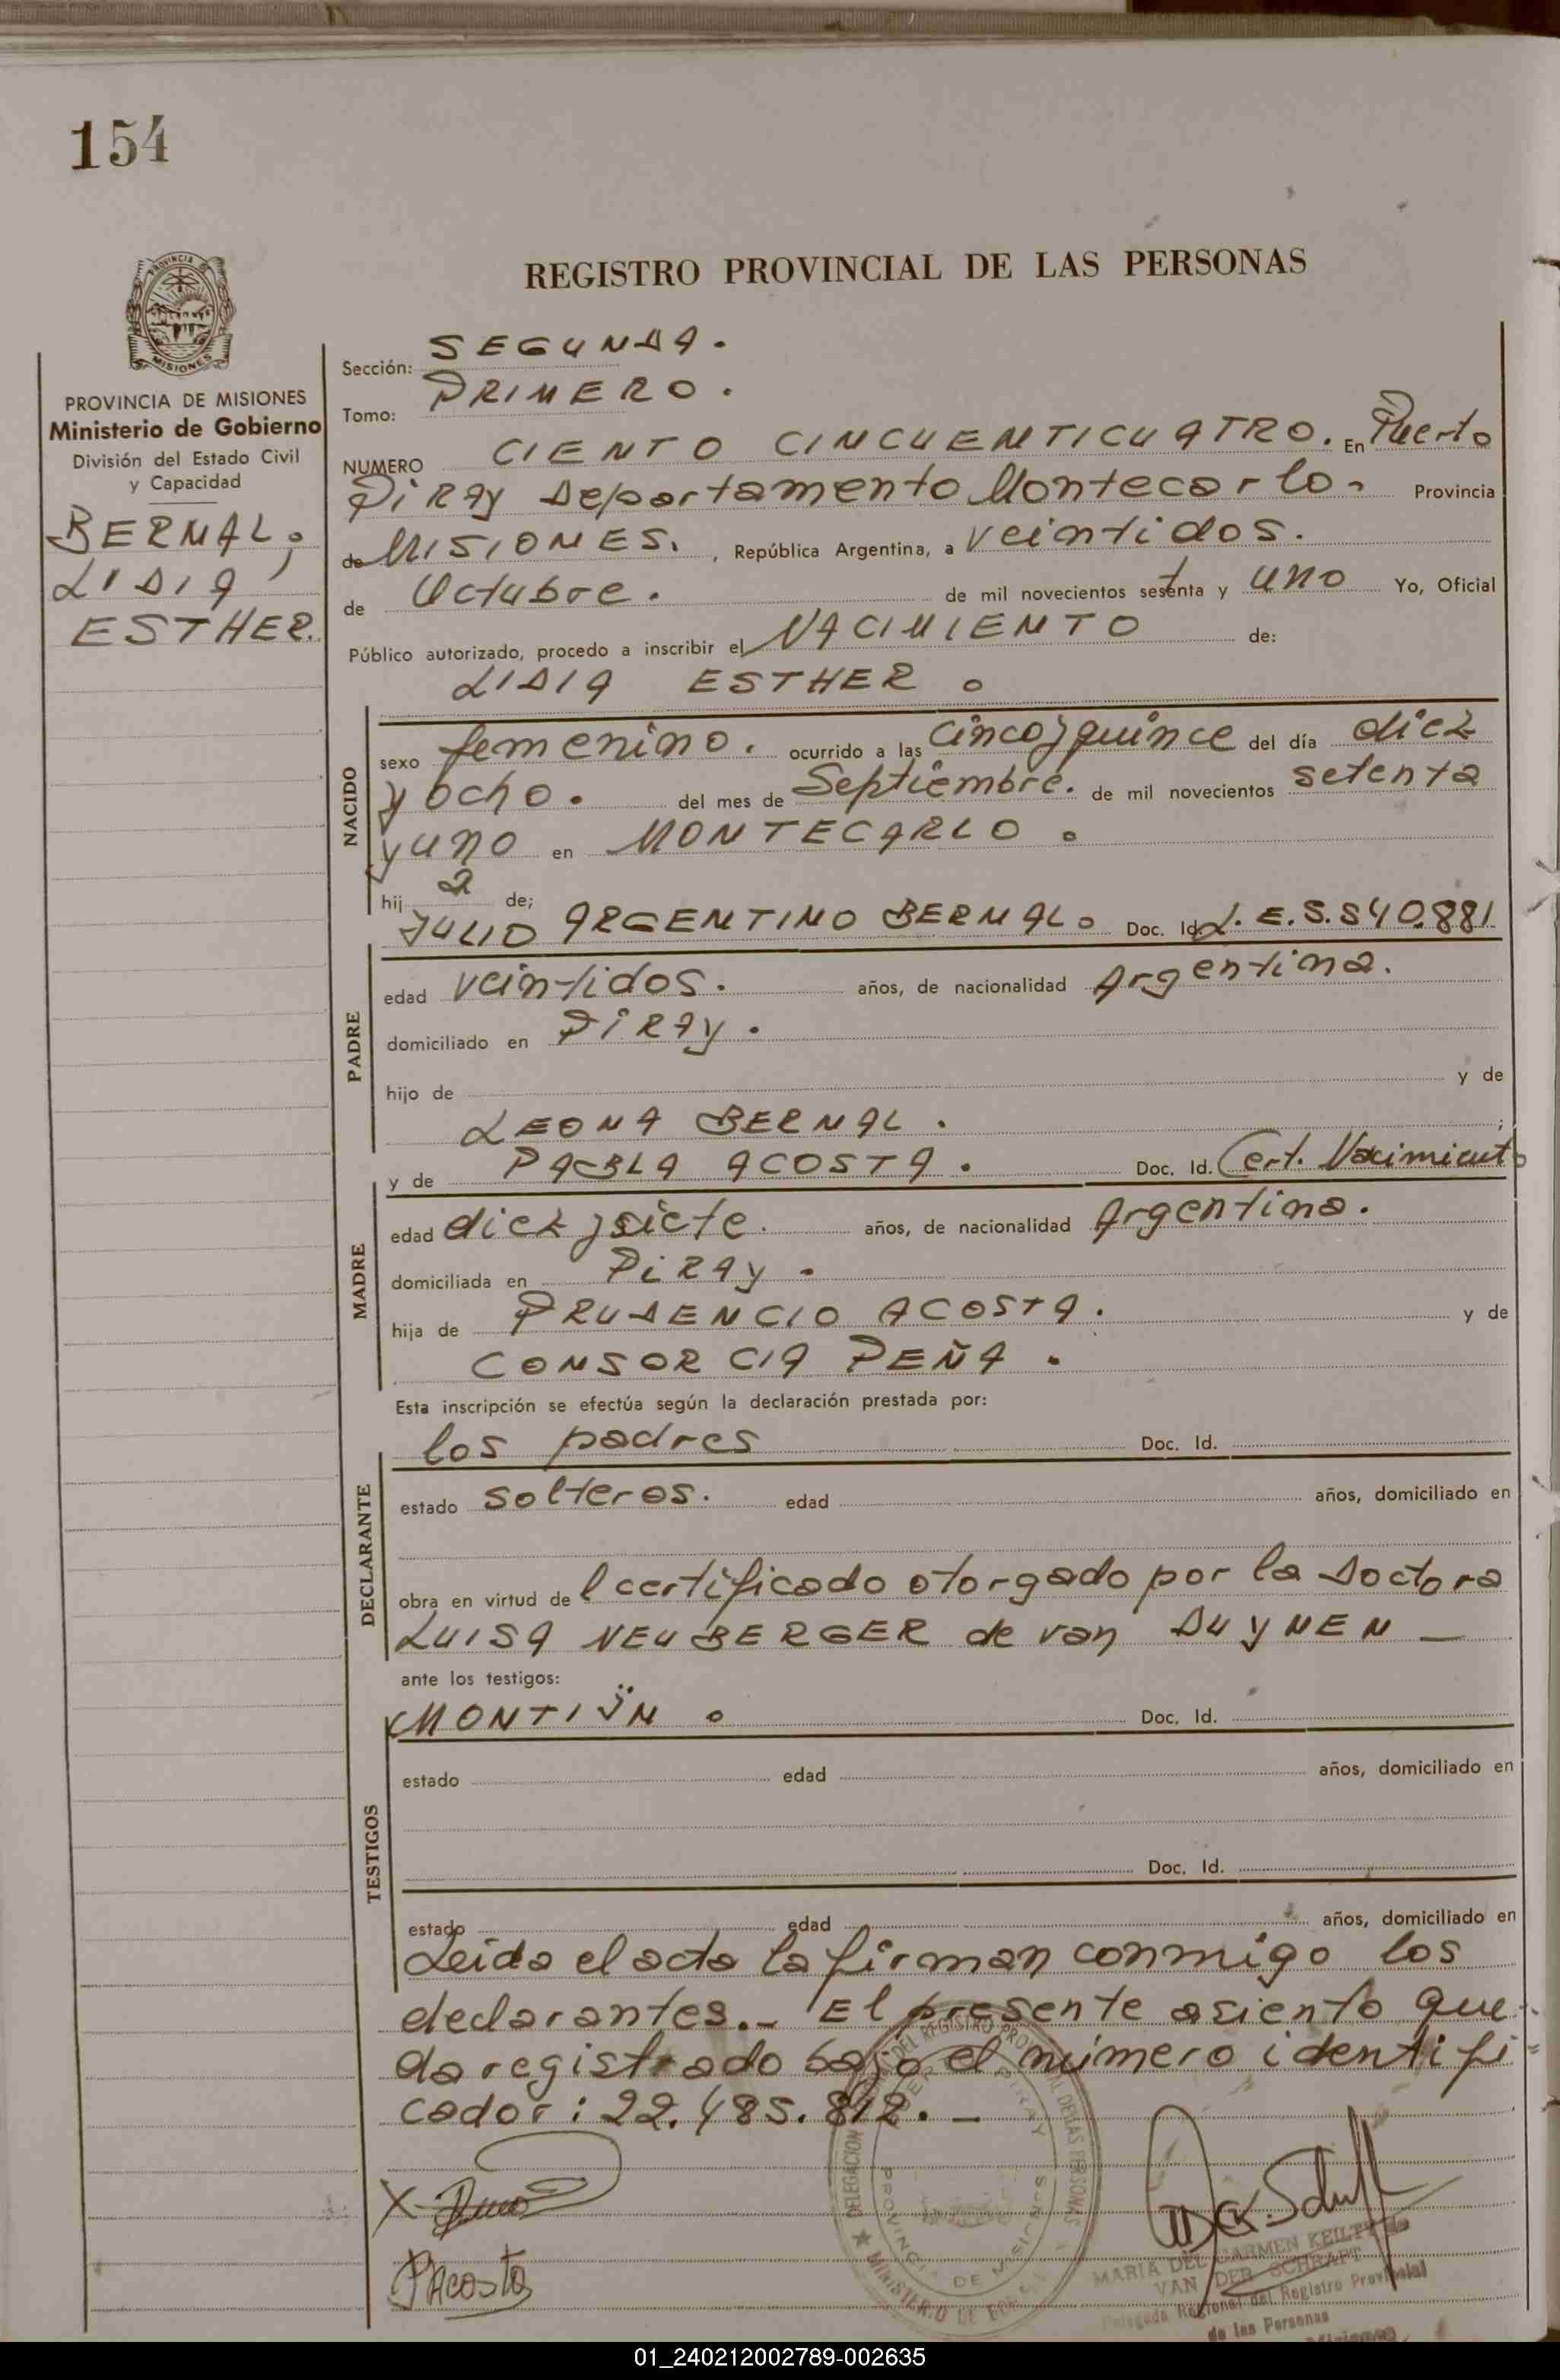 154
REGISTRO PROVINCIAL DE LAS PERSONAS
PROVINCIA
MISIONES
PROVINCIA DE MISIONES
Ministerio de Gobierno
División del Estado Civil
y Capacidad
BERNAL,
LIDIA
ESTHER.
Sección: SEGUNDA.
Tomo: PRIMERO.
NUMERO CIENTO CINCUENTICUATRO. En Puerto
PiRAy Departamento Montecarlo. Provincia
de MISIONES. , República Argentina, a veintidos.
de Octubre. de mil novecientos setenta y uno Yo, Oficial
Público autorizado, procedo a inscribir el NACIMIENTO de:
LIDIA ESTHER.
NACIDO
sexo femenino. ocurrido a las cinco y quince del día diez
y ocho. del mes de Septiembre. de mil novecientos setenta
y uno en MONTECARLO.
hij a de;
JULIO ARGENTINO BERNAL. Doc. Id. L.E. 5.540.881
PADRE
edad veintidos. años, de nacionalidad Argentina.
domiciliado en PiRAy.
hijo de y de
LEONA BERNAL. ;
y de PABLA ACOSTA. Doc. Id. Cert. Nacimiento
MADRE
edad diez y siete. años, de nacionalidad Argentina.
domiciliada en PiRAy.
hija de PRUDENCIO ACOSTA. y de
CONSORCIA PEÑA.
Esta inscripción se efectúa según la declaración prestada por:
los padres Doc. Id.
DECLARANTE
estado solteros. edad años, domiciliado en
obra en virtud de l certificado otorgado por la Doctora
LUISA NEUBERGER de van DUYNEN —
ante los testigos:
MONTIJN. Doc. Id.
TESTIGOS
estado edad años, domiciliado en
Doc. Id.
estado edad años, domiciliado en
Leida el acta la firman conmigo los
declarantes.- El presente asiento que
da registrado bajo el número identifi
cador: 22.485.812. —
DELEGACION DEL REGISTRO PROVINCIAL DE LAS PERSONAS
PIRAY
PROVINCIA DE MISIONES
MINISTERIO DE
X
PAcosta
MARIA DEL CARMEN KEILTY de
VAN DER SCHRAFT
Delegada Regional del Registro Provincial
de las Personas
01_240212002789-002635